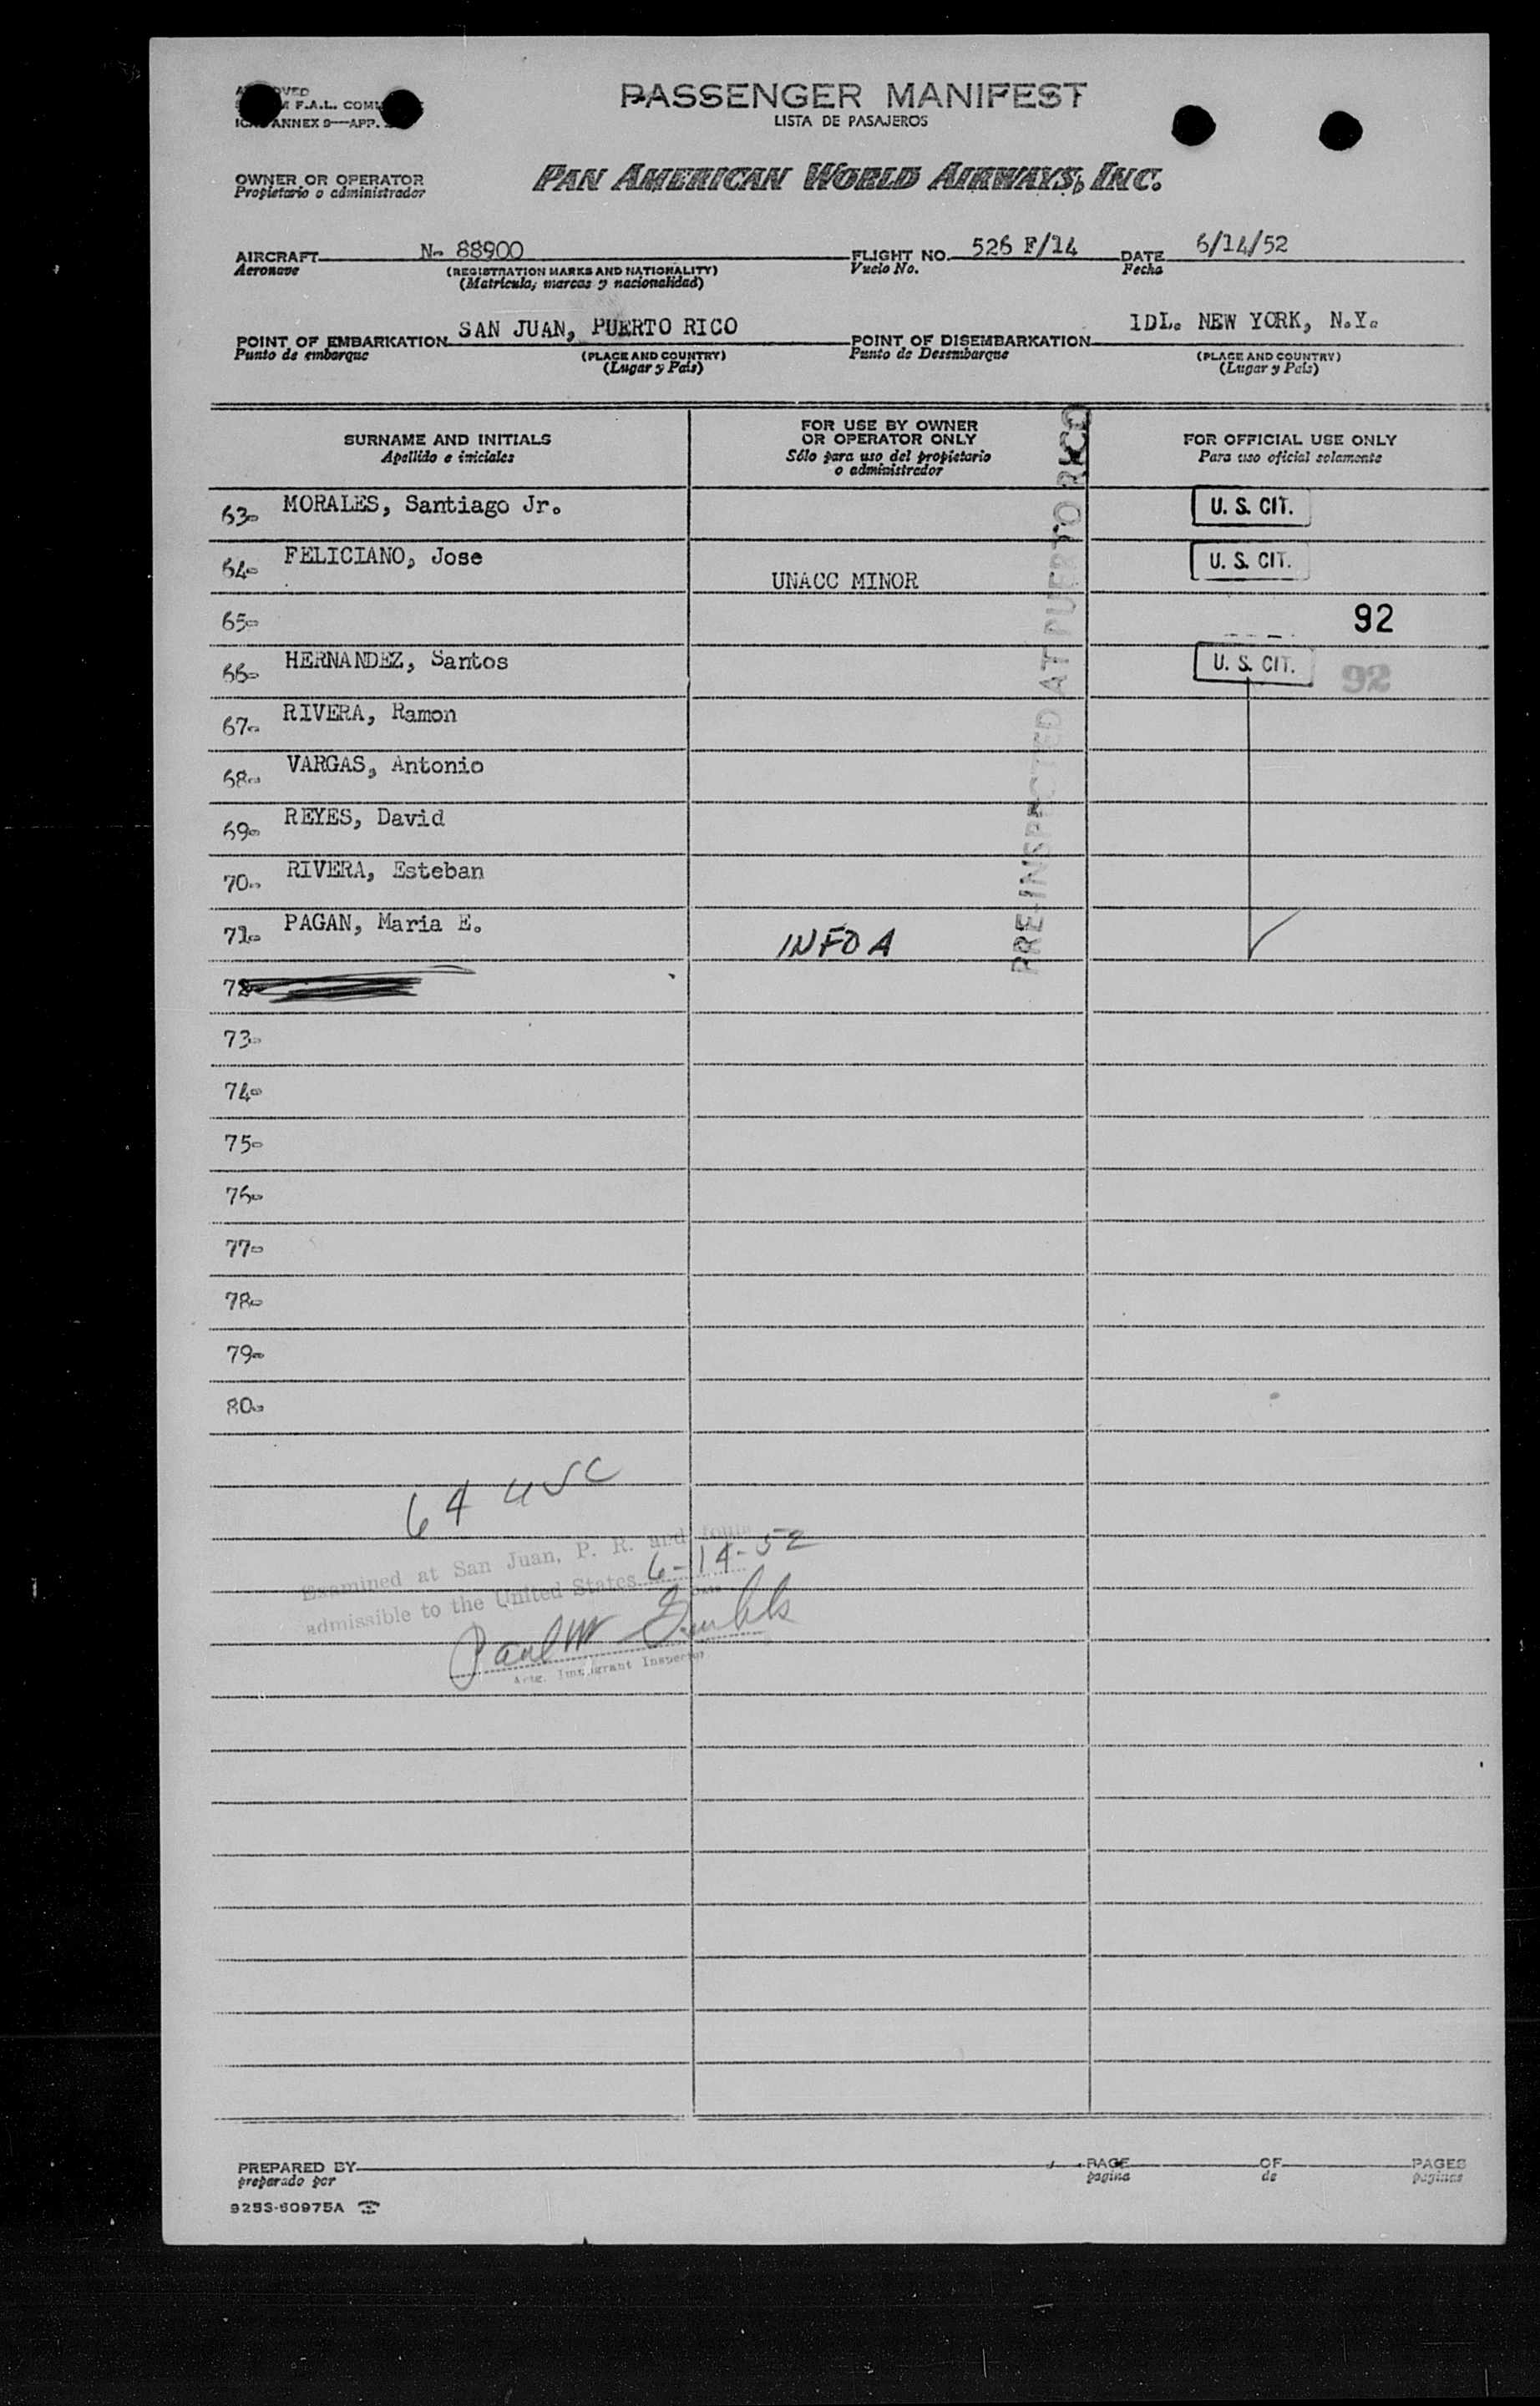 PASSENGER MANIFEST
LISTA DE PASAJEROS
F.A.L. COM
ANNEX 9—APP.
OWNER OR OPERATOR
Propietario o administrador
PAN AMERICAN WORLD AIRWAYS, INC.
AIRCRAFT N- 88900 FLIGHT NO. 526 F/14 DATE 6/14/52
Aeronave (REGISTRATION MARKS AND NATIONALITY) Vuelo No. Fecha
(Matrícula, marcas y nacionalidad)
POINT OF EMBARKATION SAN JUAN, PUERTO RICO POINT OF DISEMBARKATION IDL. NEW YORK, N.Y.
Punto de embarque (PLACE AND COUNTRY) Punto de Desembarque (PLACE AND COUNTRY)
(Lugar y País) (Lugar y País)
SURNAME AND INITIALS
Apellido e iniciales
FOR USE BY OWNER
OR OPERATOR ONLY
Sólo para uso del propietario
o administrador
FOR OFFICIAL USE ONLY
Para uso oficial solamente
PRE-INSPECTED AT PUERTO RICO
63- MORALES, Santiago Jr. U. S. CIT.
64- FELICIANO, Jose UNACC MINOR U. S. CIT.
65- 92
66- HERNANDEZ, Santos U. S. CIT. 92
67- RIVERA, Ramon
68- VARGAS, Antonio
69- REYES, David
70- RIVERA, Esteban
71- PAGAN, Maria E. INFO A
72-
73-
74-
75-
76-
77-
78-
79-
80-
64 USC
Examined at San Juan, P. R. and found
admissible to the United States 6-14-52
Date
Paul W
Actg. Immigrant Inspector
PREPARED BY PAGE OF PAGES
preparado por página de páginas
9253-60975A